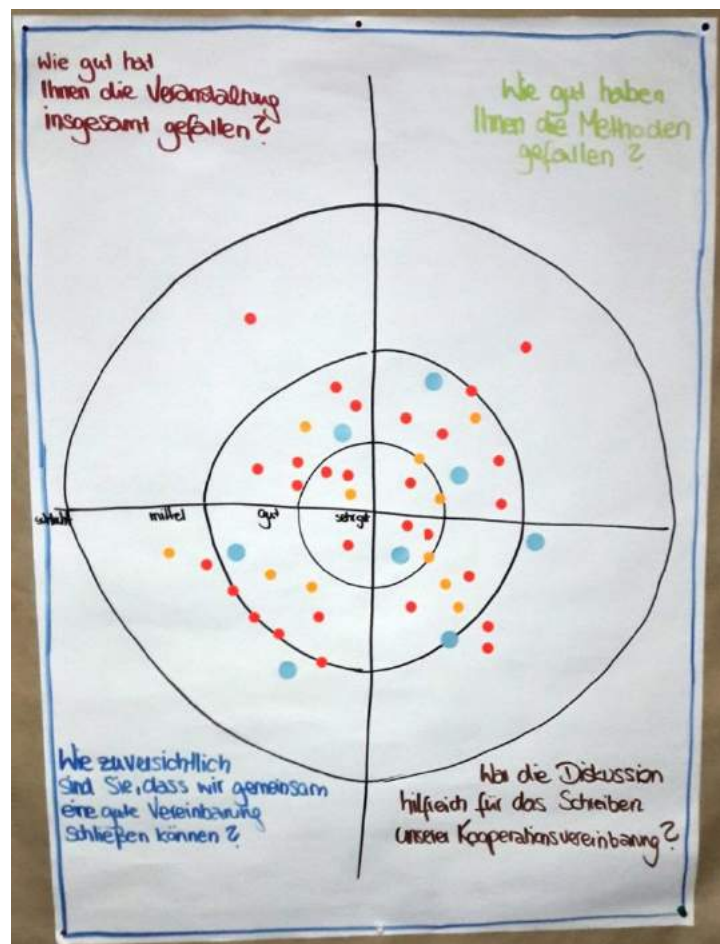 Wie gut hat
Ihnen die Veranstaltung
insgesamt gefallen?
Wie gut haben
Ihnen die Methoden
gefallen?
schlecht mittel gut sehr gut
Wie zuversichtlich
sind Sie, dass wir gemeinsam
eine gute Vereinbarung
schließen können?
War die Diskussion
hilfreich für das Schreiben
unserer Kooperationsvereinbarung?